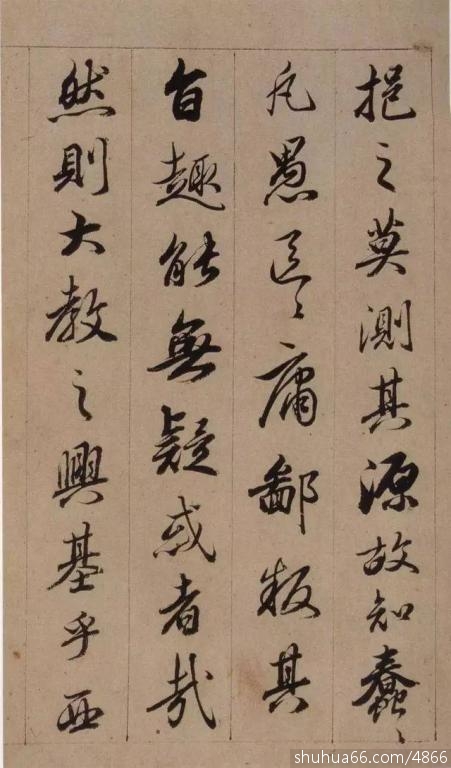 挹之莫測其源故知蠢〻
凡愚區〻庸鄙投其
旨趣能無疑惑者哉
然則大教之興基乎西
shuhua66.com/4866